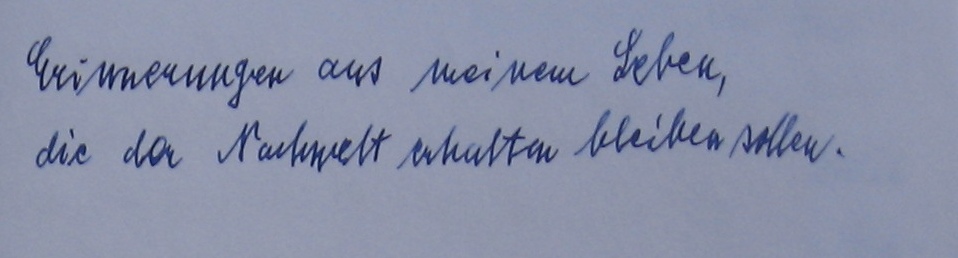 Erinnerungen aus meinem Leben,
die der Nachwelt erhalten bleiben sollen.